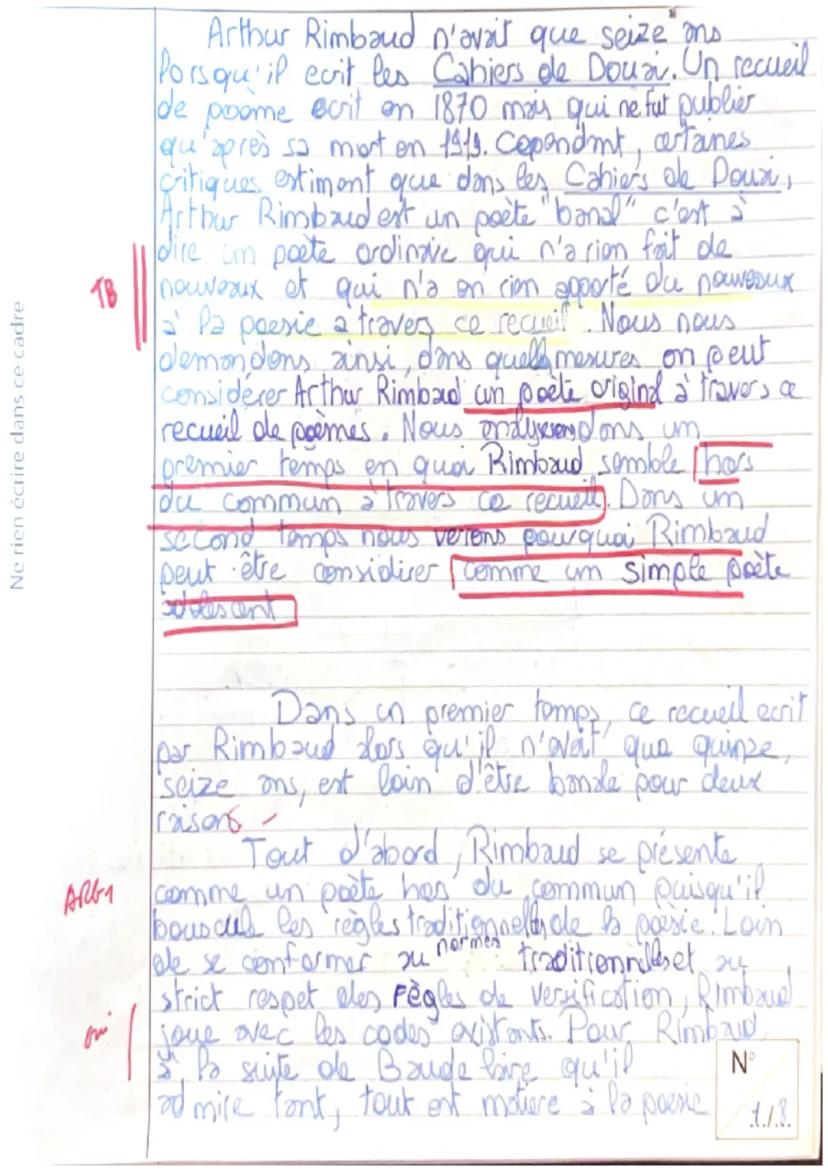 Arthur Rimbaud n'avait que seize ans
lorsqu'il ecrit les Cahiers de Douai. Un recueil
de poème ecrit en 1870 mais qui ne fut publier
qu'après sa mort en 1919. Cependant, certaines
critiques estiment que dans les Cahiers de Douai,
Arthur Rimbaud est un poète "banal" c'est à
dire un poète ordinaire qui n'a rien fait de
TB
nouveaux et qui n'a en rien apporté du nouveaux
à la poesie a travers ce recueil. Nous nous
demandons ainsi, dans quelles mesures on peut
considérer Arthur Rimbaud un poète original à travers ce
recueil de poèmes. Nous analyserons dans un
premier temps en quoi Rimbaud semble hors
du commun à travers ce recueil. Dans un
second temps nous verons pourquoi Rimbaud
peut être considirer comme un simple poète
adolescent
Dans un premier temps, ce recueil ecrit
par Rimbaud alors qu'il n'avait que quinze,
seize ans, est loin d'être banale pour deux
raisons.
Tout d'abord, Rimbaud se présente
ARG1
comme un poète hors du commun puisqu'il
bouscule les règles traditionnelles de la poèsie. Loin
de se conformer au normes traditionnelles et au
strict respet des règles de versification, Rimbaud
oui
joue avec les codes existants. Pour Rimbaud,
à la suite de Baudelaire qu'il
admire tant, tout est matière à la poesie
N°
1./8.
Ne rien écrire dans ce cadre